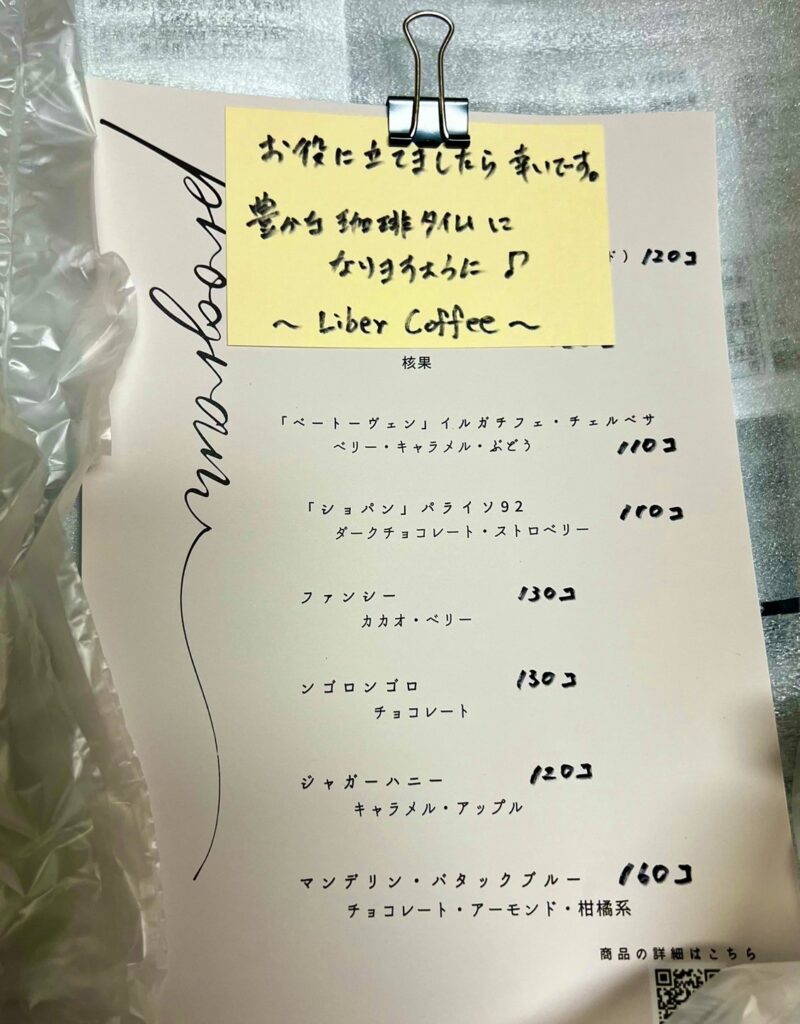 program
お役に立てましたら幸いです。
豊かな珈琲タイムに
なりますように♪
～ Liber Coffee ～
ド） 120コ
核果
「ベートーヴェン」イルガチフェ・チェルベサ
ベリー・キャラメル・ぶどう 110コ
「ショパン」パライソ92 110コ
ダークチョコレート・ストロベリー
ファンシー 130コ
カカオ・ベリー
ンゴロンゴロ 130コ
チョコレート
ジャガーハニー 120コ
キャラメル・アップル
マンデリン・バタックブルー 160コ
チョコレート・アーモンド・柑橘系
商品の詳細はこちら